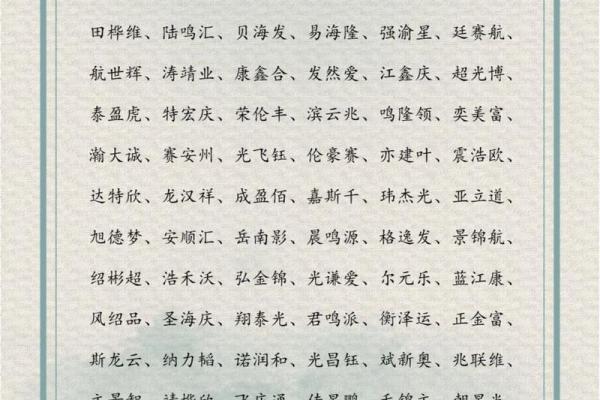 田桦维、陆鸣汇、贝海发、易海隆、强渝星、廷赛航、
航世辉、涛靖业、康鑫合、发然爱、江鑫庆、超光博、
泰盈虎、特宏庆、荣伦丰、滨云兆、鸣隆领、奕美富、
瀚大诚、赛安州、光飞钰、伦豪赛、亦建叶、震浩欧、
达特欣、龙汉祥、成盈佰、嘉斯千、玮杰光、亚立道、
旭德梦、安顺汇、岳南影、晨鸣源、格逸发、景锦航、
绍彬超、浩禾沃、弘金锦、光谦爱、尔元乐、蓝江康、
风绍品、圣海庆、翔泰光、君鸣派、衡泽运、正金富、
斯龙云、纳力韬、诺润和、光昌钰、斌新奥、兆联维、